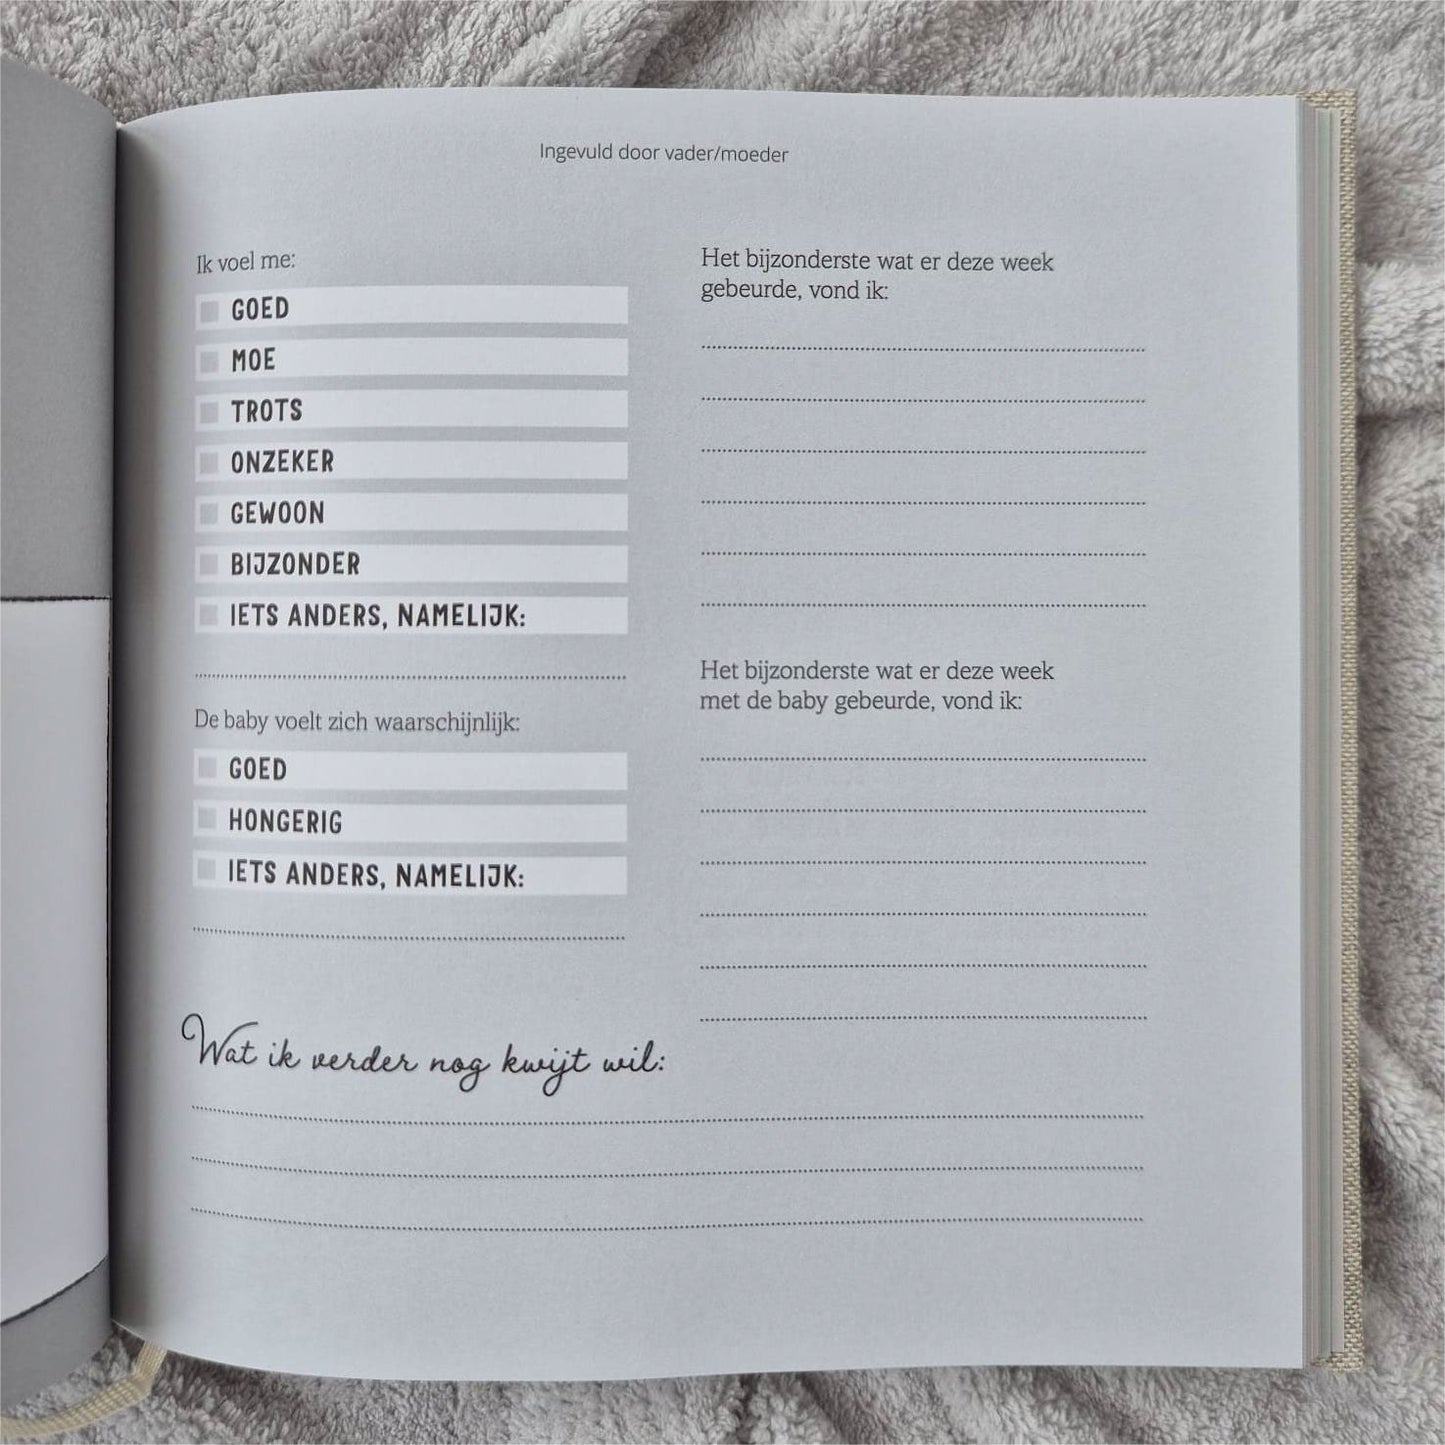 Ingevuld door vader/moeder
Ik voel me:
GOED
MOE
TROTS
ONZEKER
GEWOON
BIJZONDER
IETS ANDERS, NAMELIJK:
De baby voelt zich waarschijnlijk:
GOED
HONGERIG
IETS ANDERS, NAMELIJK:
Het bijzonderste wat er deze week
gebeurde, vond ik:
Het bijzonderste wat er deze week
met de baby gebeurde, vond ik:
Wat ik verder nog kwijt wil: